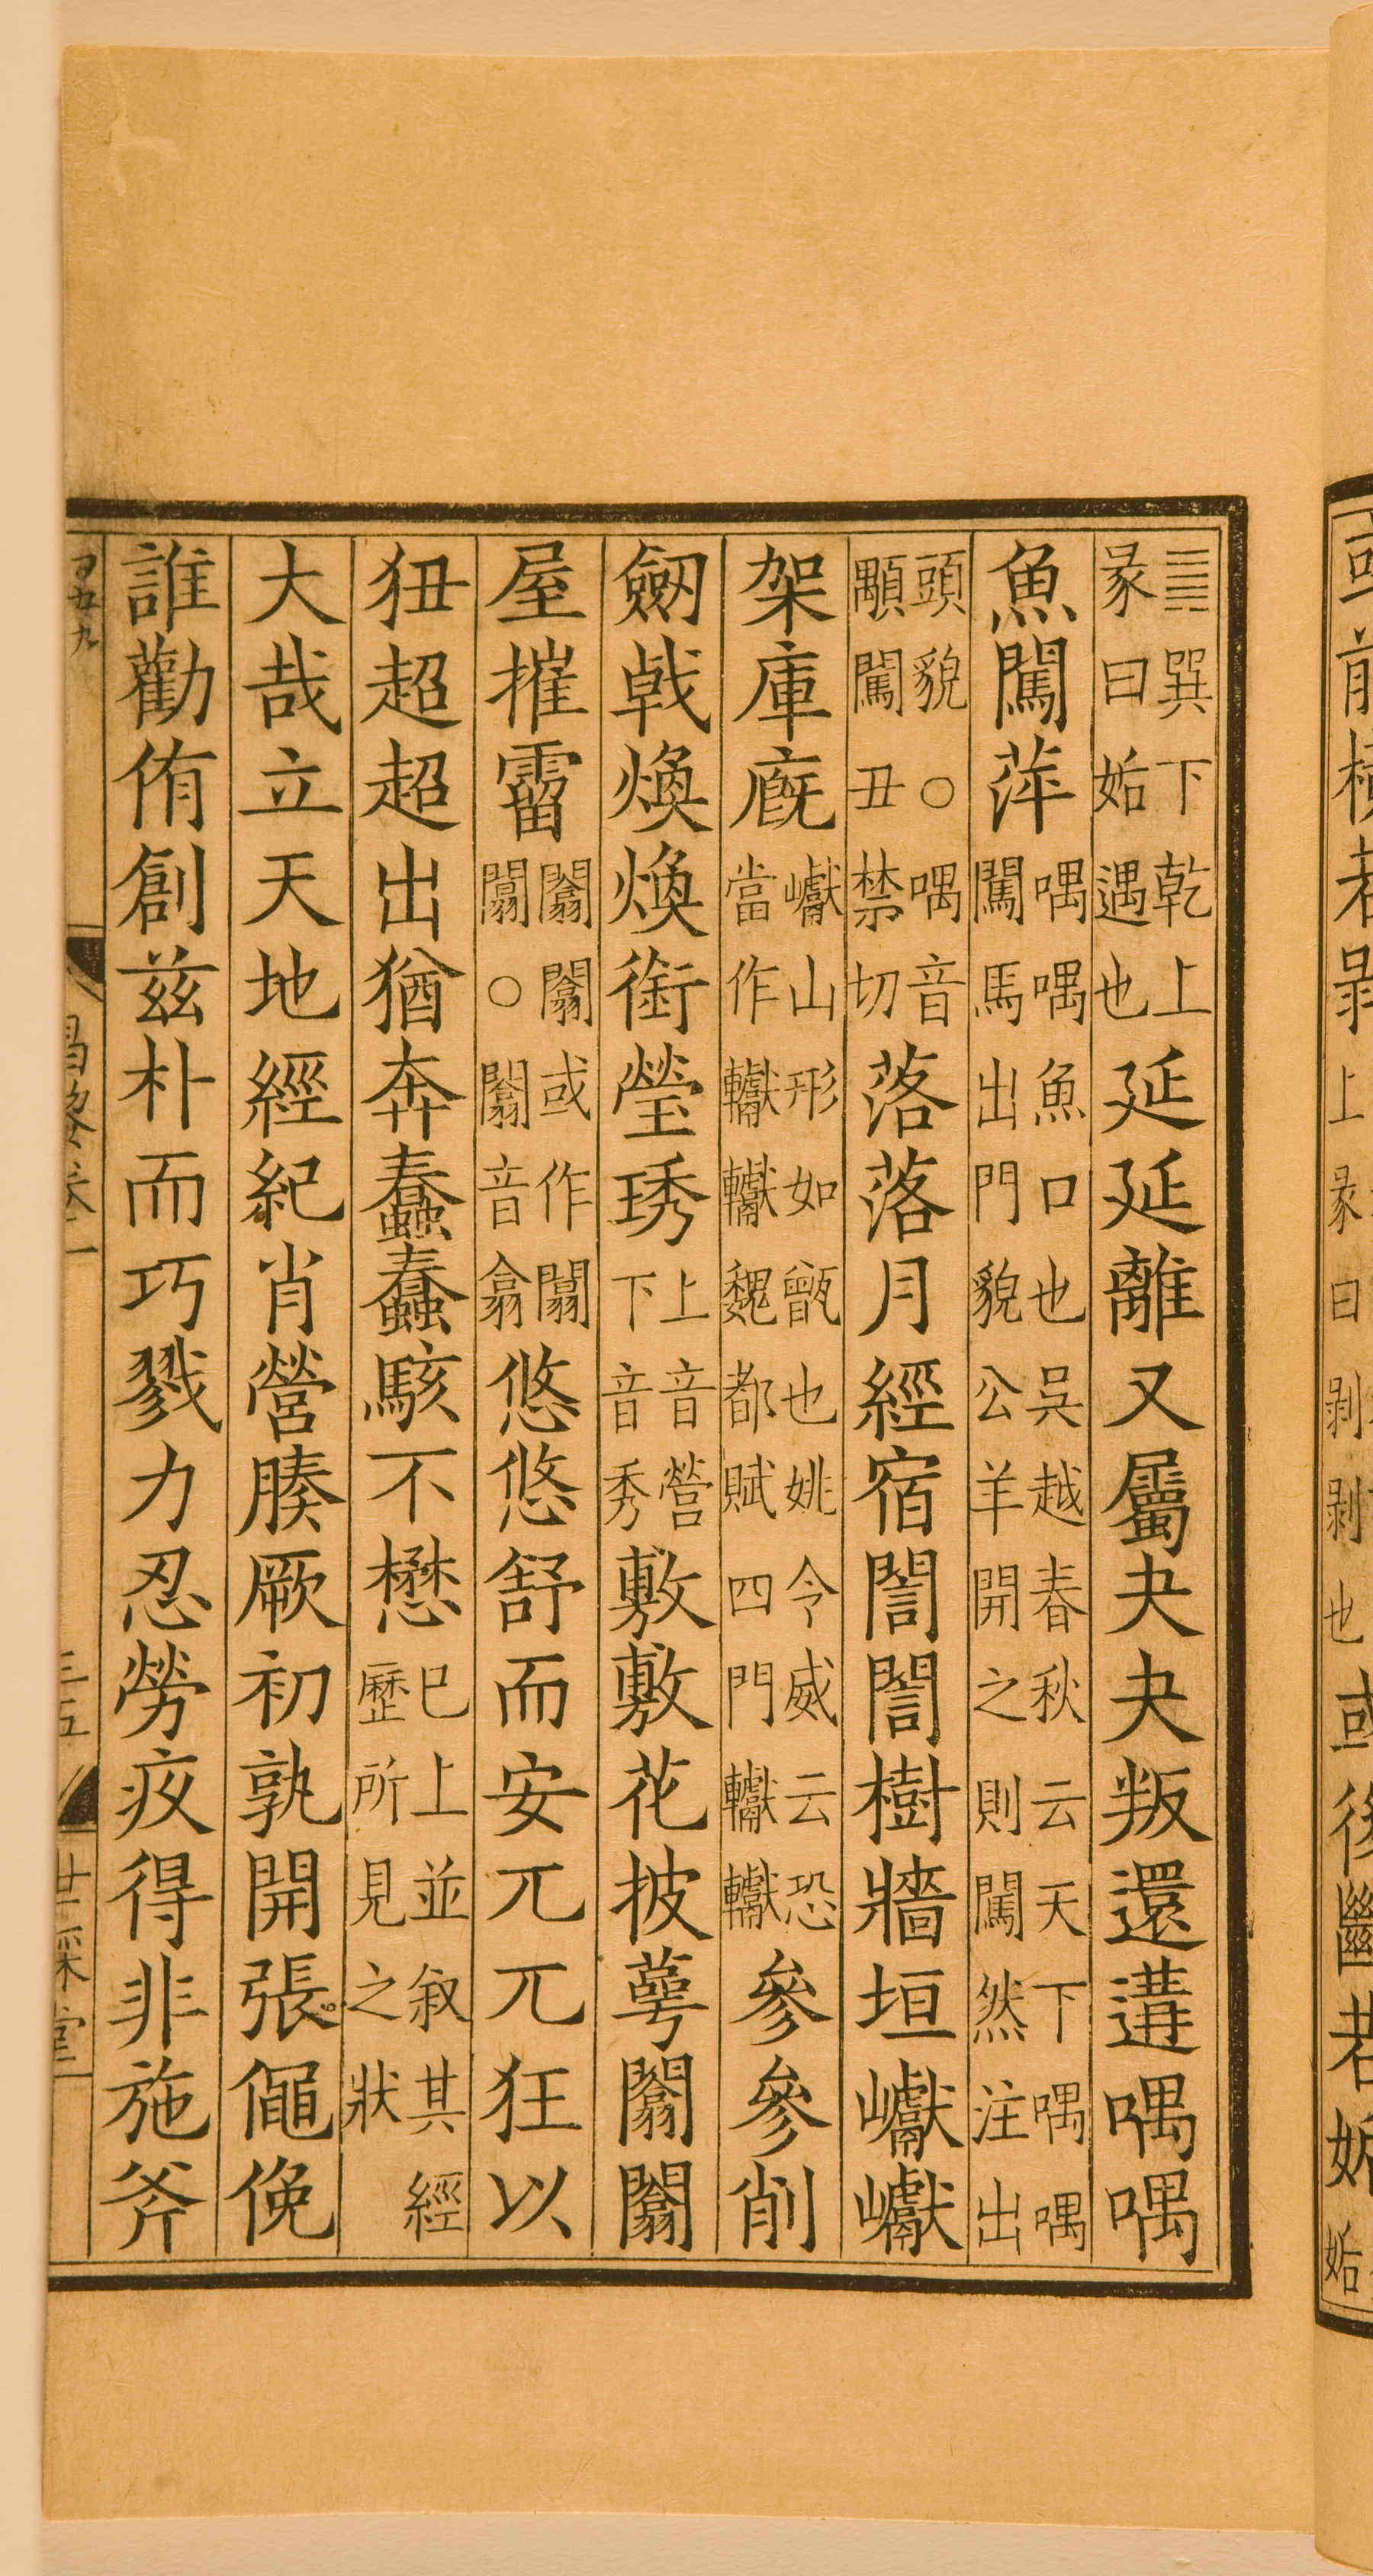 ䷫巽下乾上彖曰姤遇也延延離又屬夬夬叛還遘喁喁
魚闖萍喁喁魚口也吳越春秋云天下喁喁闖馬出門貌公羊開之則闖然注出
頭貌○喁音顒闖丑禁切落落月經宿誾誾樹牆垣巘巘
架庫廐巘山形如甑也姚令威云恐當作轞轞魏都賦四門轞轞參參削
劒戟煥煥銜瑩琇上音營下音秀敷敷花披萼闟闟
屋摧霤闟闟或作闒闒○闒音翕悠悠舒而安兀兀狂以
狃超超出猶奔蠢蠢駭不懋已上並叙其經歷所見之狀
大哉立天地經紀肖營腠厥初孰開張僶俛
誰勸侑創茲朴而巧戮力忍勞疚得非施斧
昌黎卷一
三五